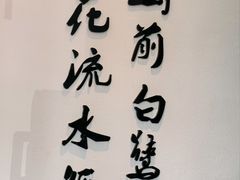 前白鷺
花流水